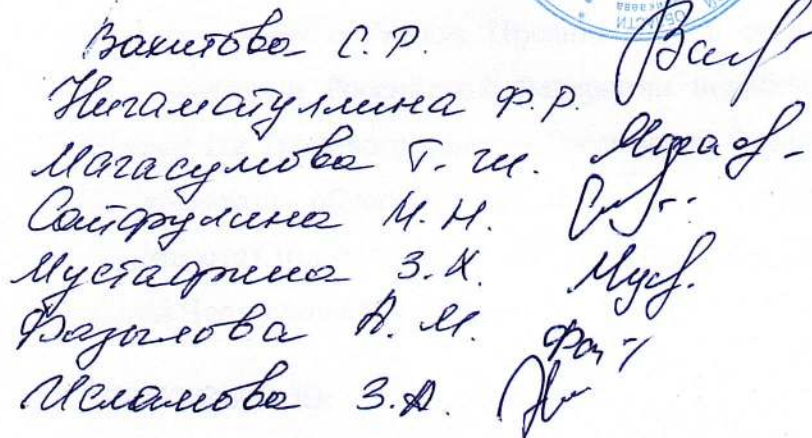 ОБЛАСТИ
Вахитова С. Р. Вах
Нигаматуллина Ф. Р.
Магасумова Г. М. Магас
Сайфулина М. Н.
Мустафина З. Х. Мус
Фазылова А. М. Фаз
Исламова З. А.